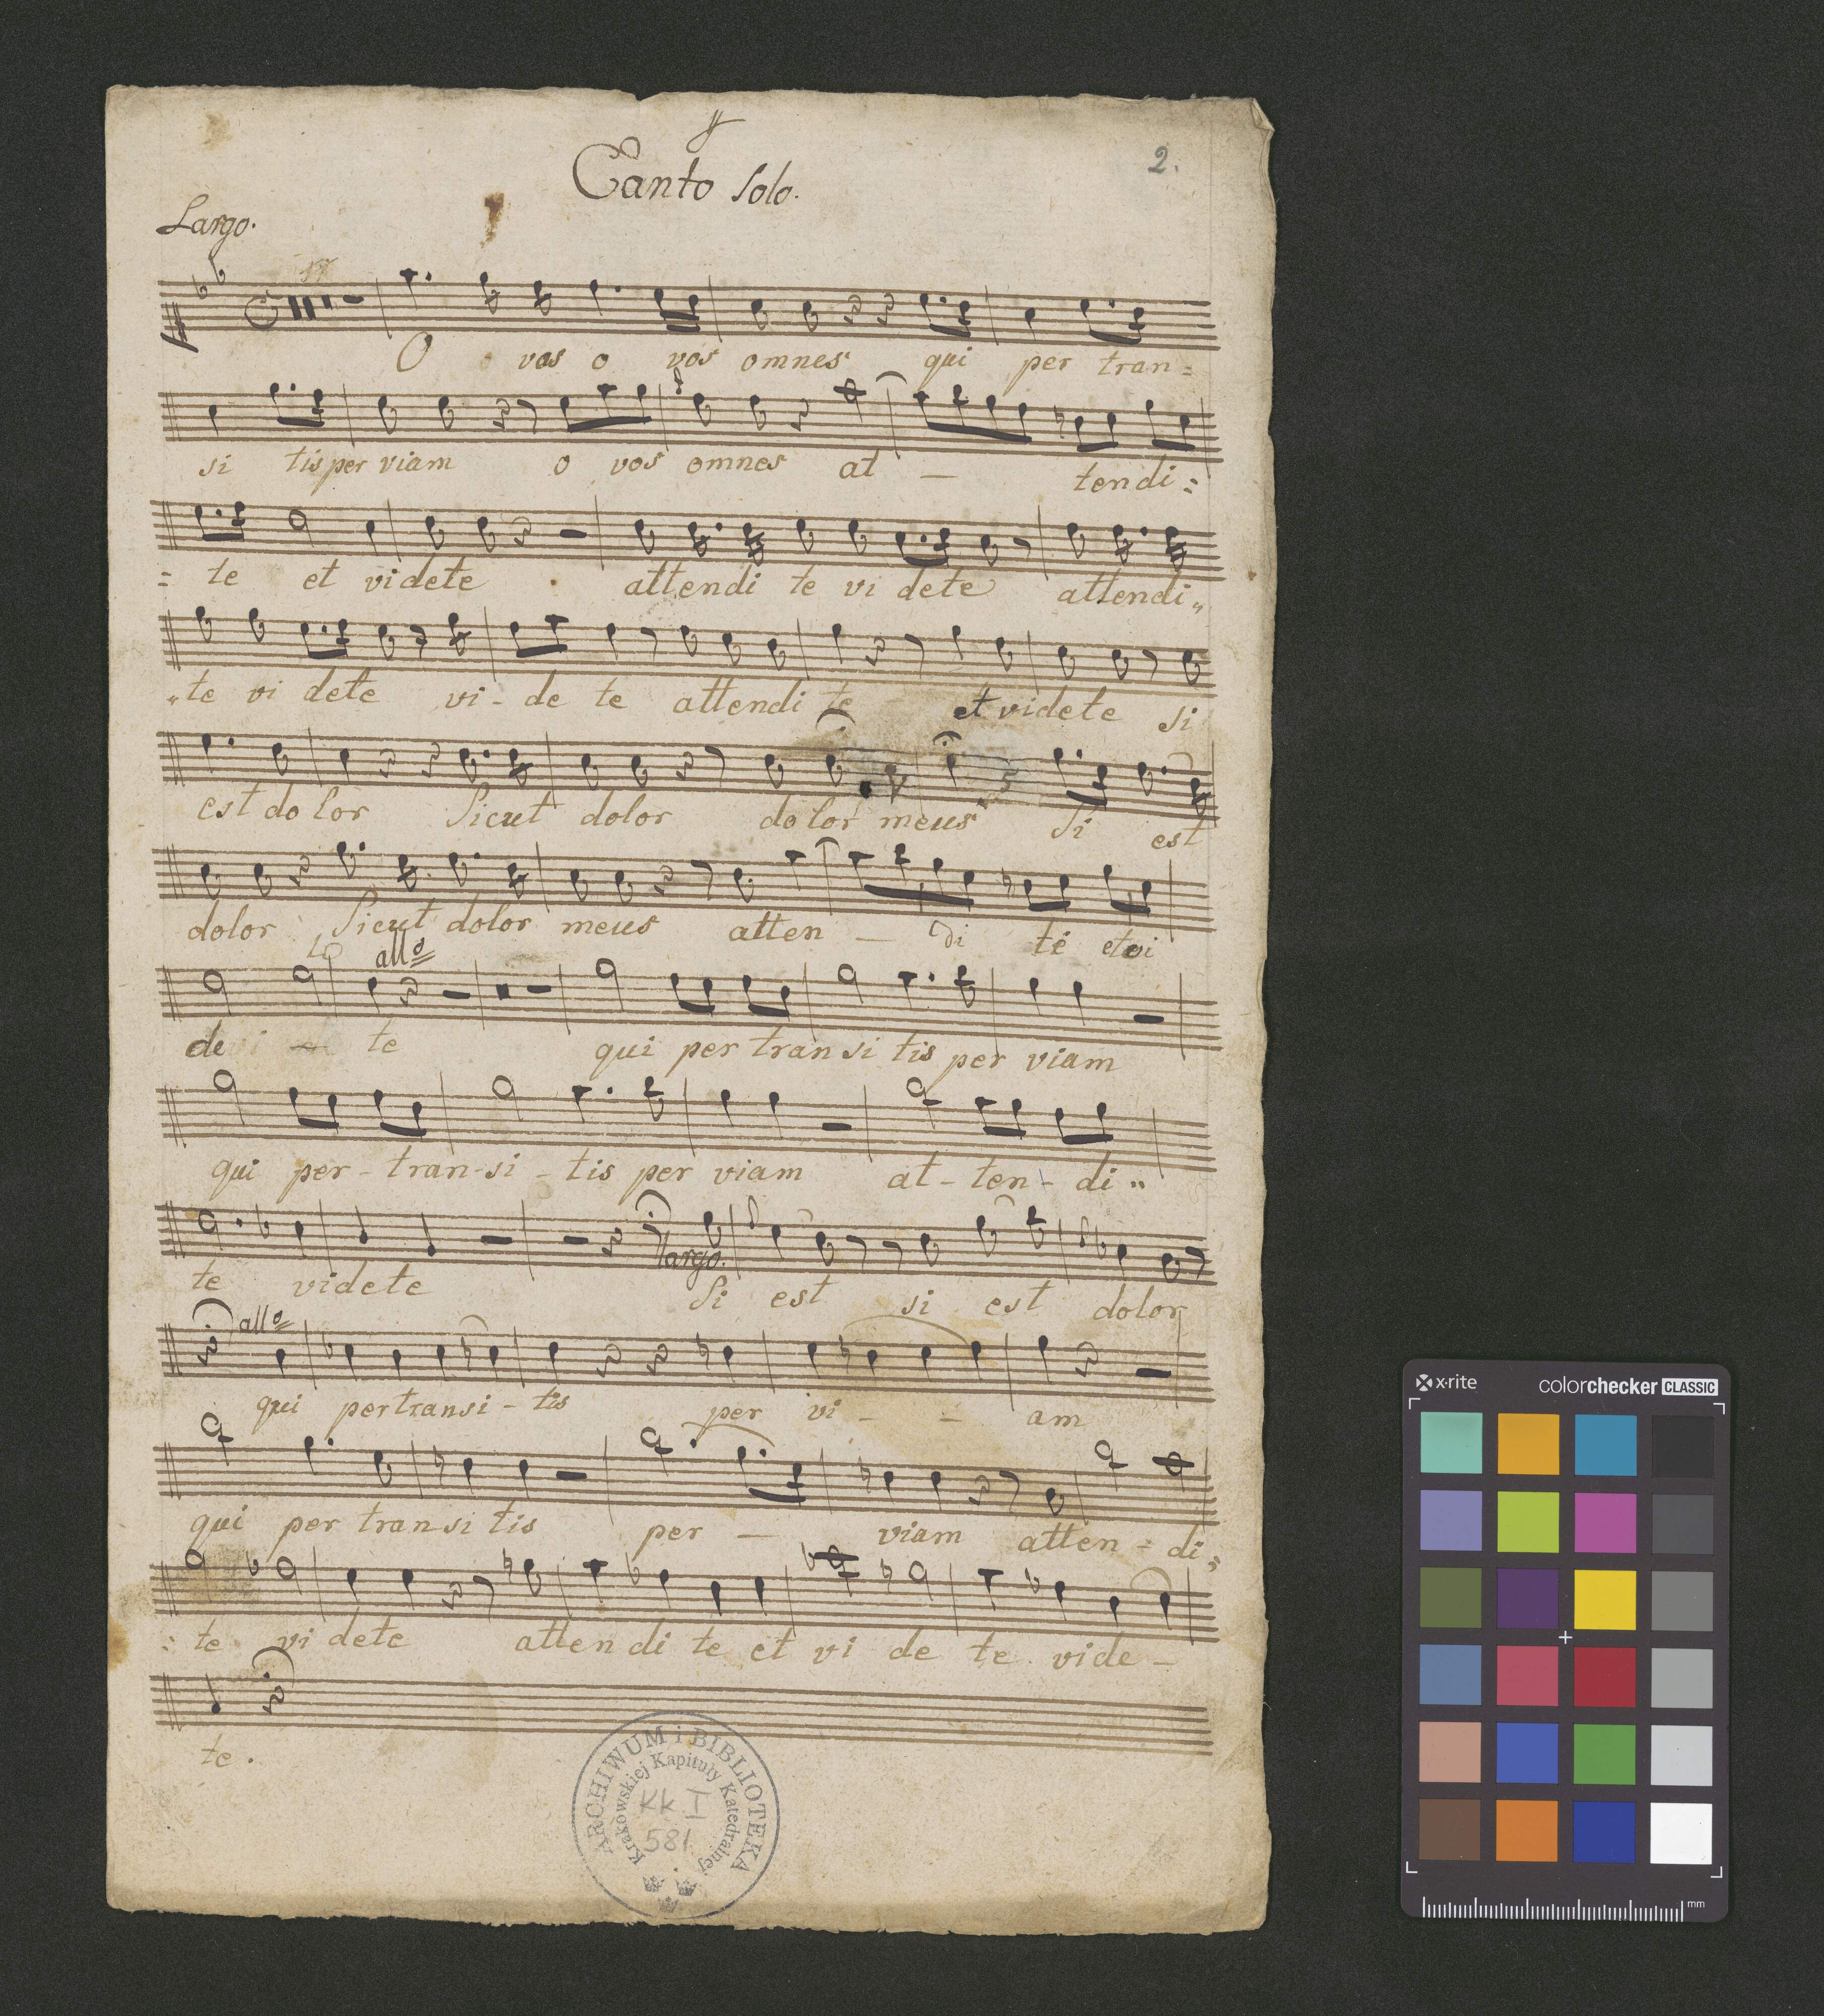 2.
Canto Solo.
Largo.
17
O o vos o vos omnes qui per tran=
si tis per viam o vos omnes at — tendi=
= te et videte attendi te vi dete attendi„
„te vi dete vi - de te attendi te et videte si
est do lor Sicut dolor dolor meus Si est
dolor Sicut dolor meus atten — di te et vi
all⁰
de — te qui per transi tis per viam
qui per - tran - si - tis per viam at - ten - di„
te videte Si est si est dolor
largo.
all⁰
qui pertransi - tis per vi - - am
qui per transi tis per — viam atten = di„
: te vi dete atten di te et vi de te vide -
te.
ARCHIWUM i BIBLIOTEKA
Krakowskiej Kapituły Katedralnej
KK I
581
x·rite
colorchecker CLASSIC
mm